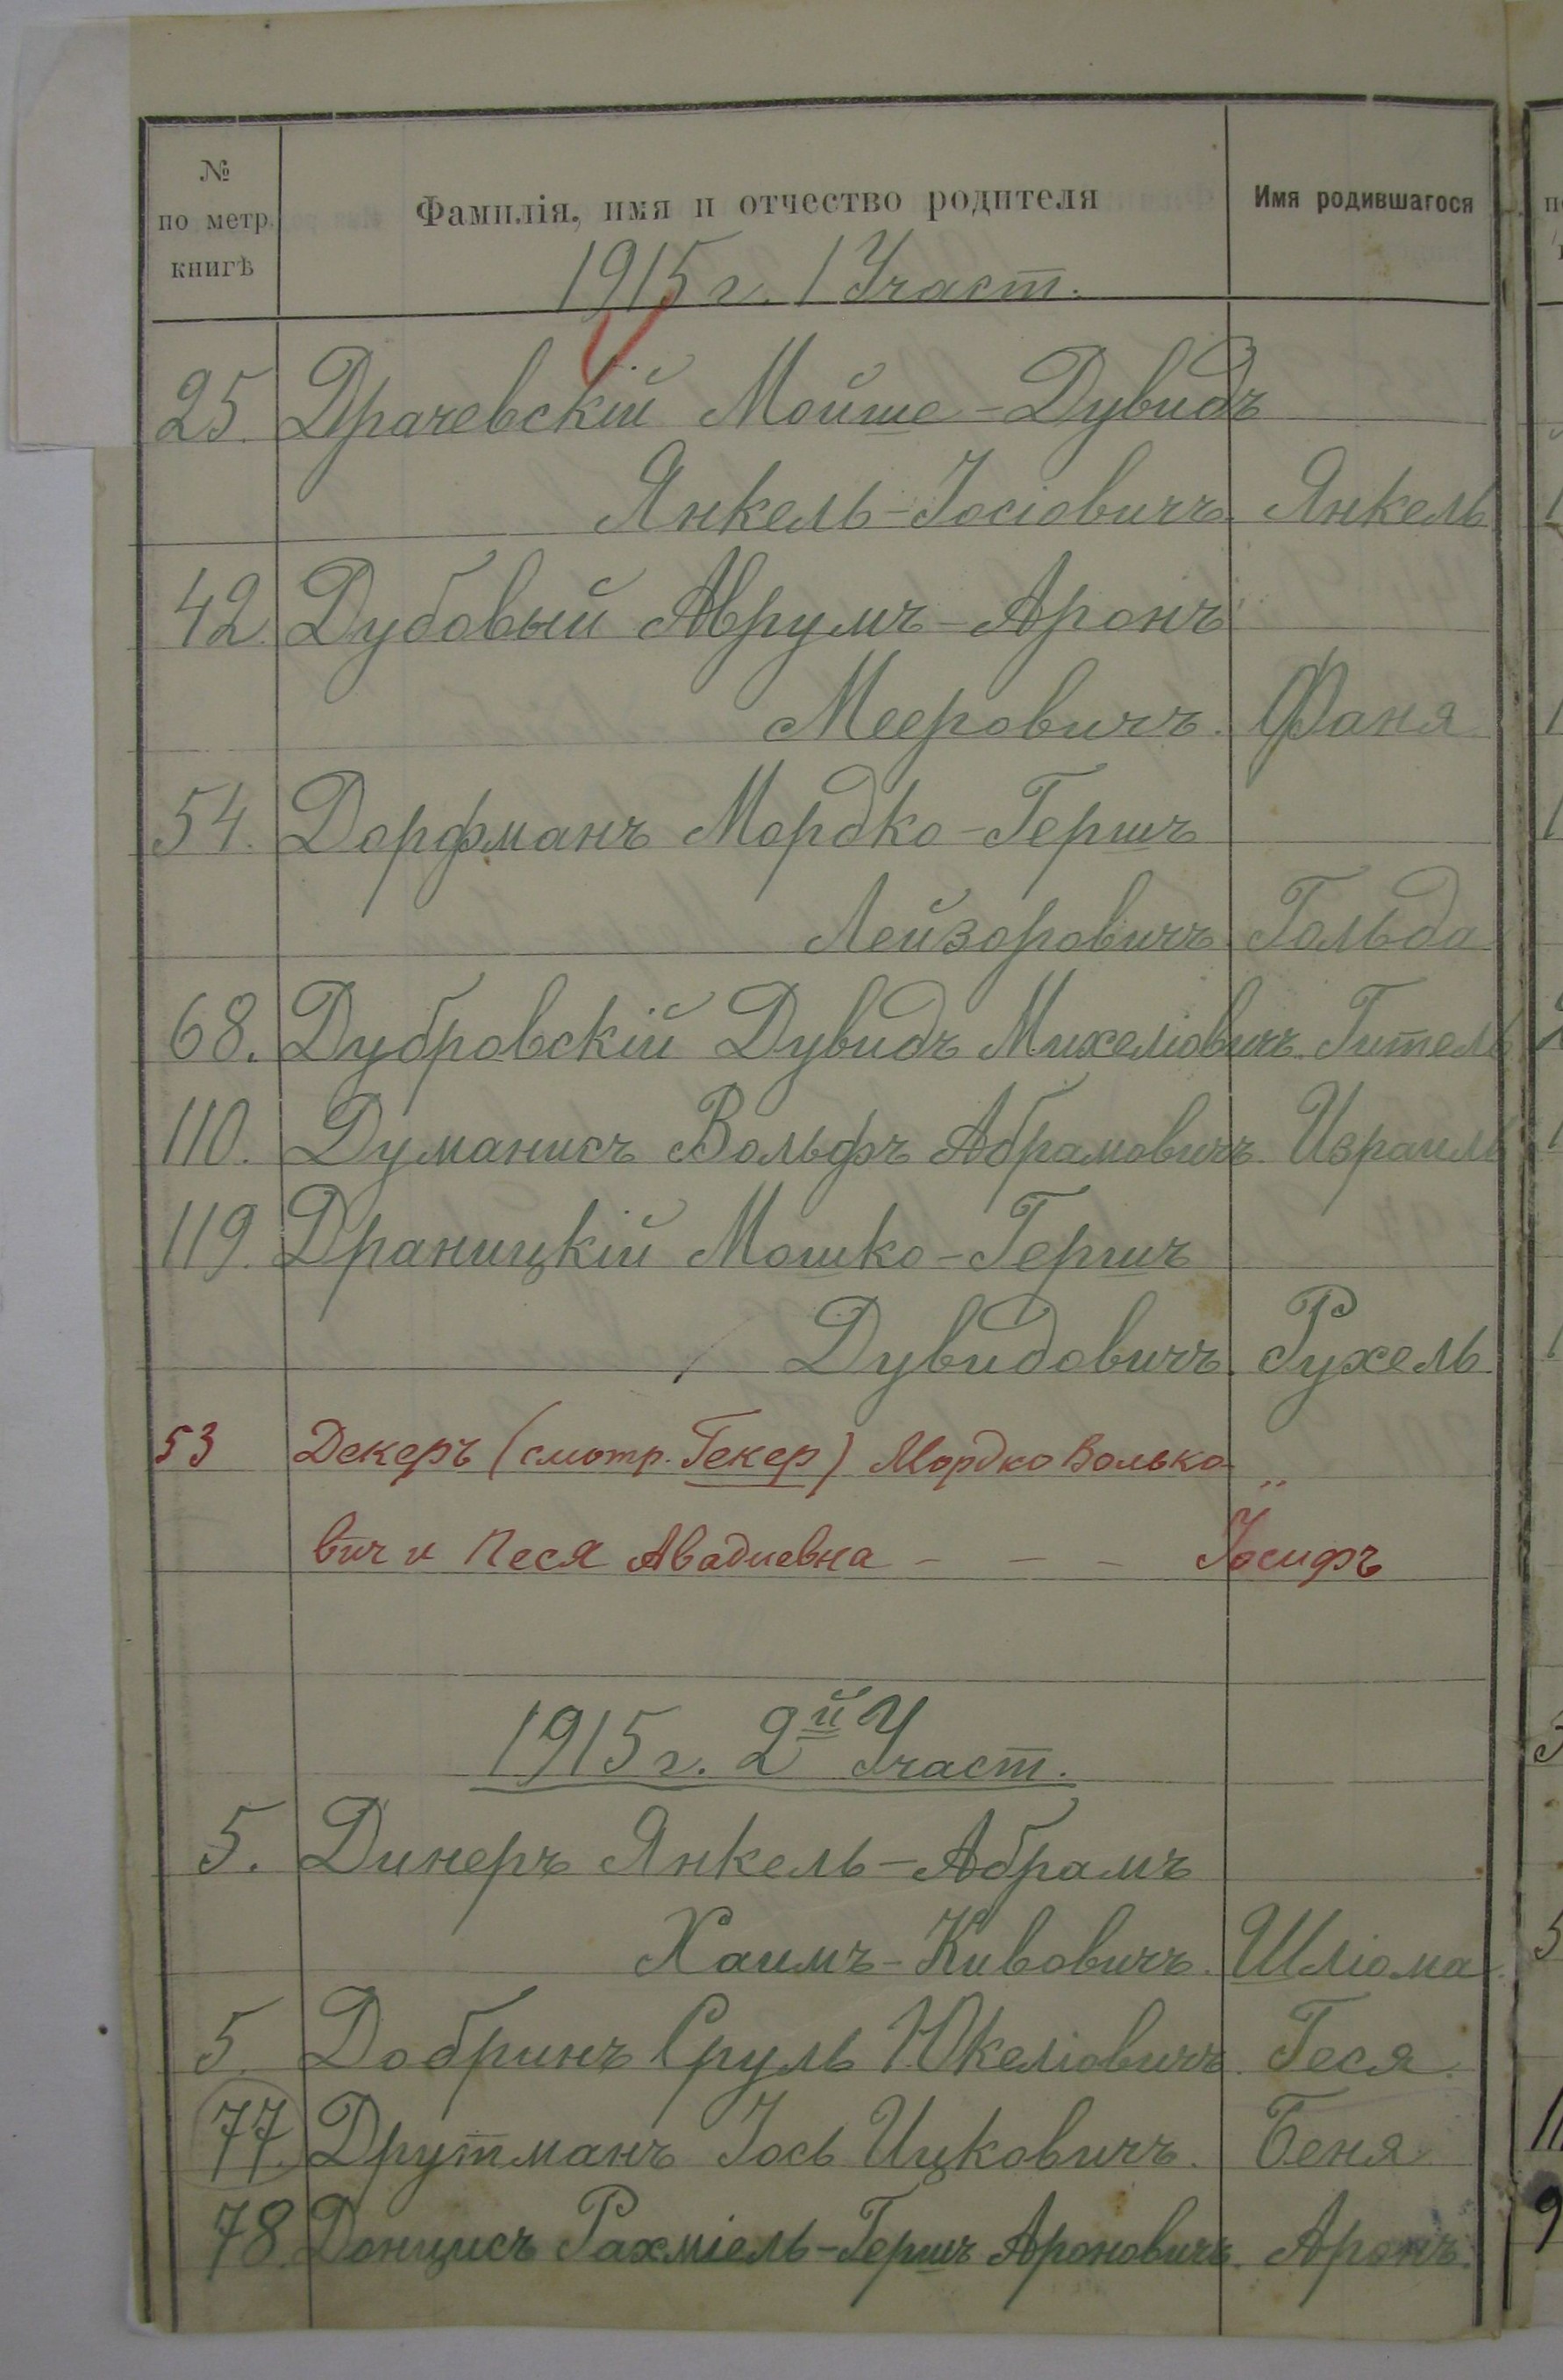 № по метр. книгѣ Фамилія, имя и отчество родителя Имя родившагося
1915 г. 1 Участ.
25. Драчевскій Мойше-Дувидъ
Янкель-Іосіовичъ. Янкель
42. Дубовый Аврумъ-Аронъ
Мееровичъ. Фаня
54. Дорфманъ Мордко-Гершъ
Лейзоровичъ. Гольда
68. Дубровскій Дувидъ Михеліовичъ. Гитель
110. Думанисъ Вольфъ Абрамовичъ. Израиль
119. Драницкій Мошко-Гершъ
Дувидовичъ. Рухель
53 Декеръ (смотр. Гекер) Мордко Волько-
вич и Песя Авадиевна - - - Іосифъ
1915 г. 2й Участ.
5. Динеръ Янкель-Абрамъ
Хаимъ-Кивовичъ. Шліома
5. Добринъ Сруль Юкеліовичъ. Геся.
77. Друтманъ Іось Ицковичъ. Беня
78. Донцисъ Рахміель-Гершъ Ароновичъ. Аронъ.